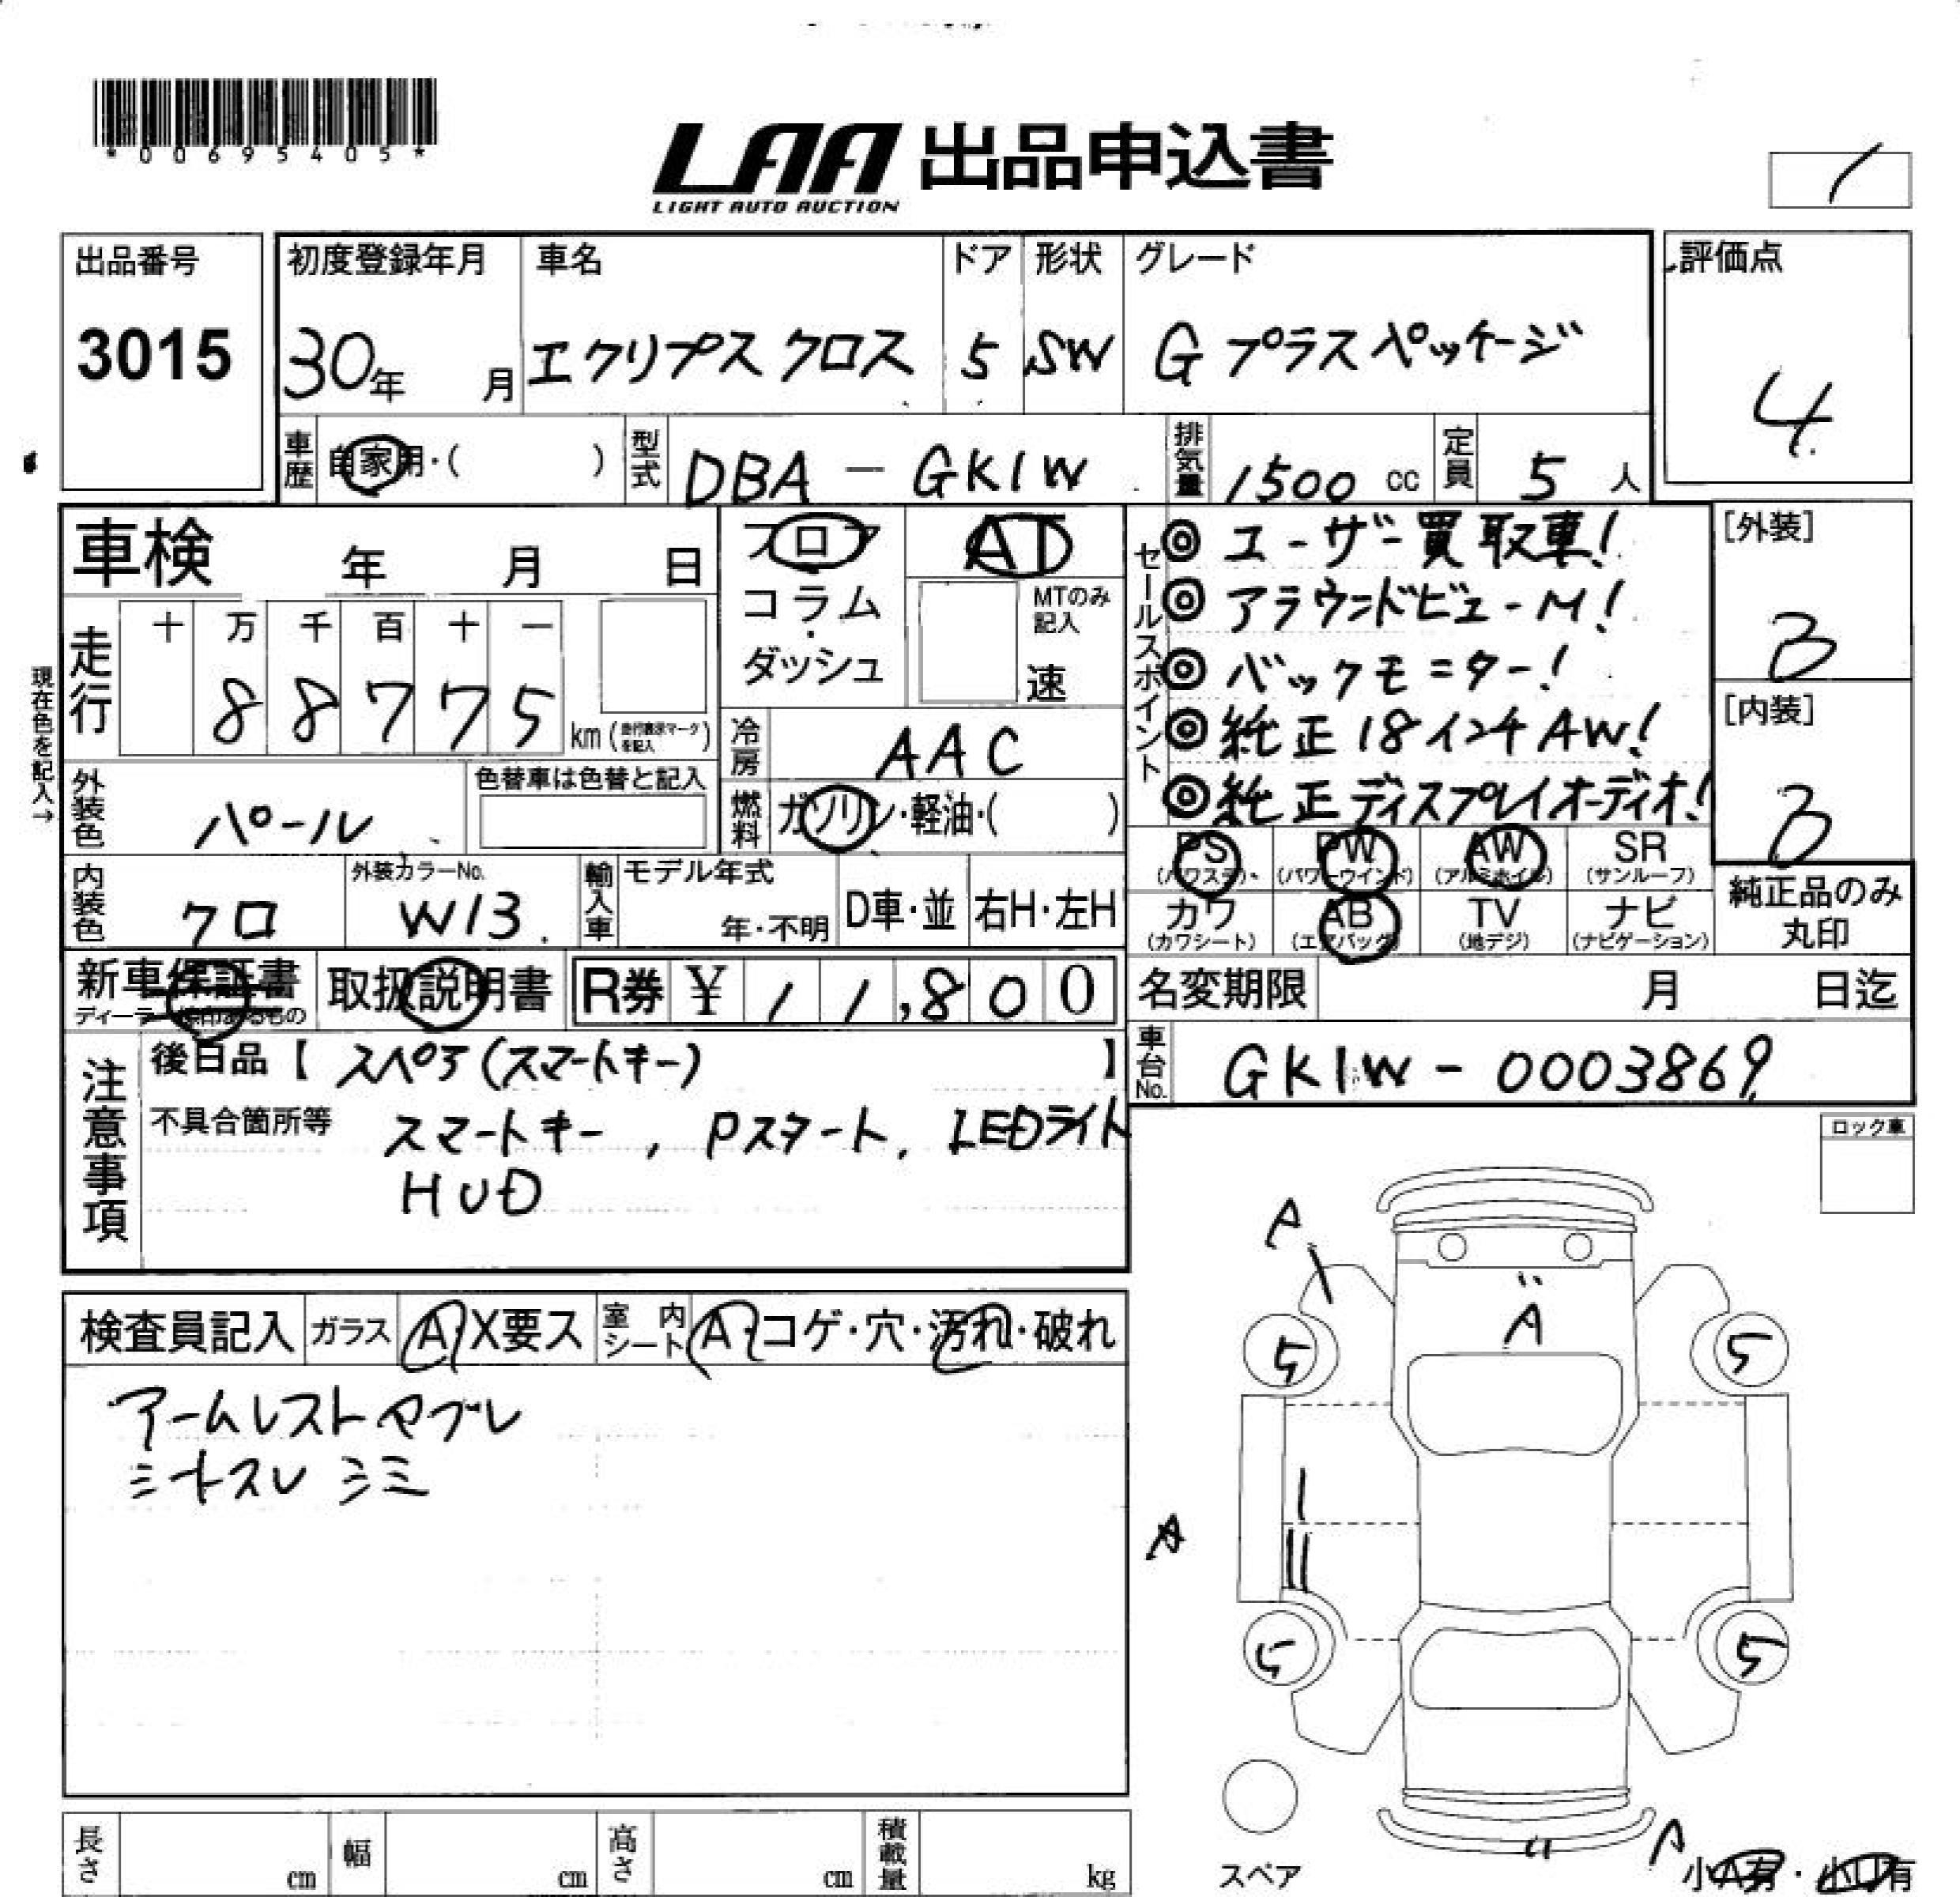 *00695405*
LAA 出品申込書
LIGHT AUTO AUCTION
出品番号
3015
初度登録年月
30年 月
車名
エクリプス クロス
ドア
5
形状
SW
グレード
G プラスパッケージ
評価点
4
車歴 自家用・( )
型式 DBA - GK1W
排気量 1500 cc
定員 5 人
車検 年 月 日
フロア
コラム
・
ダッシュ
AT
MTのみ
記入
速
セールスポイント
◎ ユーザー買取車!
◎ アラウンドビューM!
◎ バックモニター!
◎ 純正18インチAW!
◎ 純正ディスプレイオーディオ!
[外装]
3
[内装]
3
走行
十 万 千 百 十 一
8 8 7 7 5
km
現在色を記入→
冷房 AAC
外装色 パール
色替車は色替と記入
燃料 ガソリン・軽油・( )
内装色 クロ
外装カラーNo.
W13
輸入車 モデル年式
年・不明
D車・並
右H・左H
PS
(パワステ)
PW
(パワーウインド)
AW
(アルミホイル)
SR
(サンルーフ)
カワ
(カワシート)
AB
(エアバッグ)
TV
(地デジ)
ナビ
(ナビゲーション)
純正品のみ
丸印
新車保証書
取扱説明書
R券 ¥ 11,800
名変期限 月 日迄
車台No. GK1W - 0003869
注意事項
後日品【 スペア(スマートキー) 】
不具合箇所等 スマートキー, Pスタート, LEDライト
HUD
ロック車
検査員記入
ガラス A・X要ス
室内シート A・コゲ・穴・汚れ・破れ
アームレストヤブレ
シートスレ シミ
A
A
5
5
A
5
5
A
スペア
小A有・小U有
長さ cm
幅 cm
高さ cm
積載量 kg